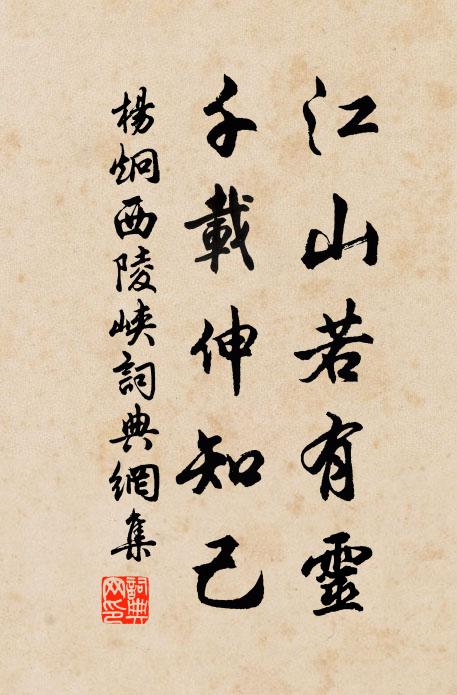 江山若有靈
千載伸知己
楊炯西陵峽詞典網集
詞典網印